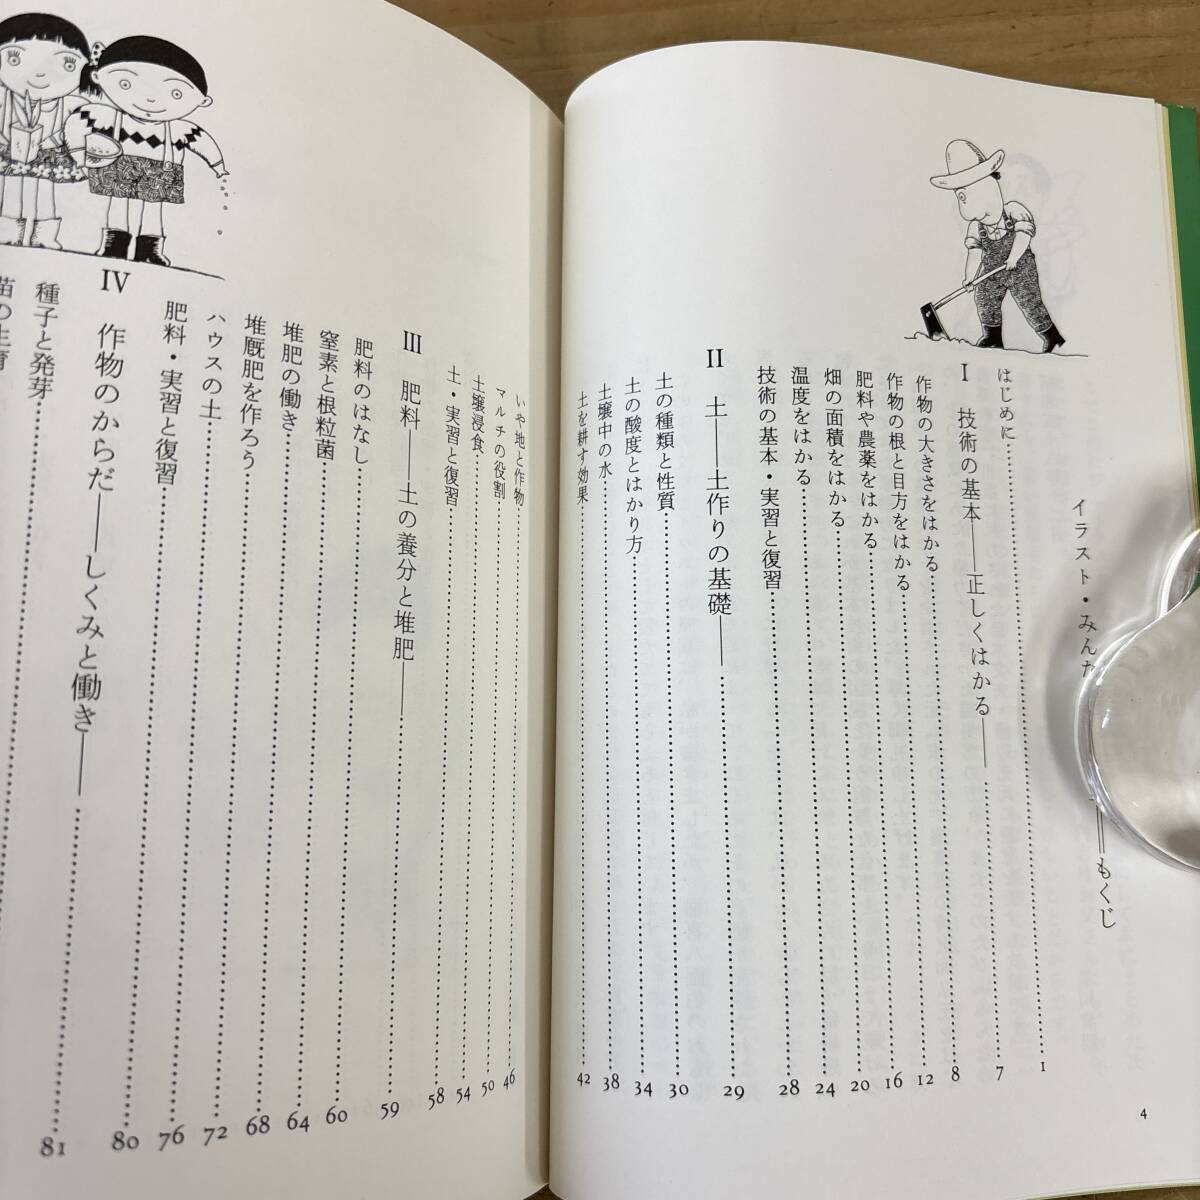 イラスト・みんな
もくじ
はじめに……1
I 技術の基本——正しくはかる——……7
作物の大きさをはかる……8
作物の根と目方をはかる……12
肥料や農薬をはかる……16
畑の面積をはかる……20
温度をはかる……24
技術の基本・実習と復習……28
II 土——土作りの基礎——……29
土の種類と性質……30
土の酸度とはかり方……34
土壌中の水……38
土を耕す効果……42
4
いや地と作物……46
マルチの役割……50
土壌浸食……54
土・実習と復習……58
III 肥料——土の養分と堆肥——……59
肥料のはなし……60
窒素と根粒菌……64
堆肥の働き……68
堆厩肥を作ろう……72
ハウスの土……76
肥料・実習と復習……80
IV 作物のからだ——しくみと働き——……81
種子と発芽……
苗の生育